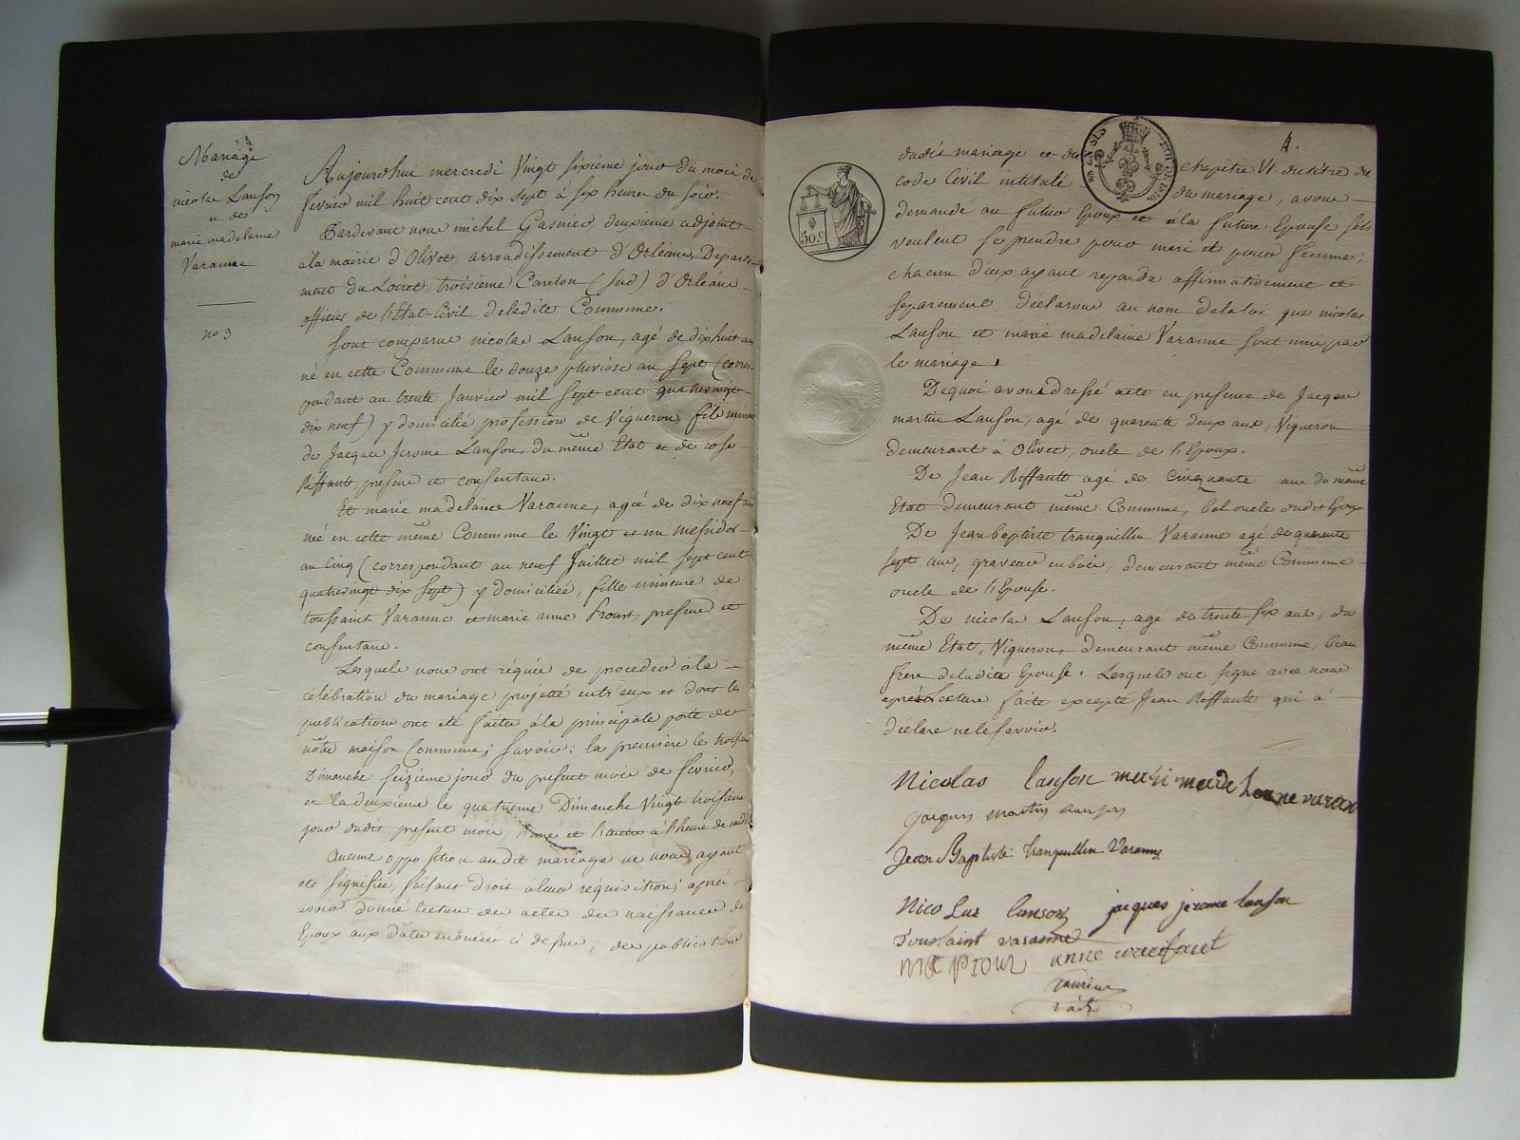 Mariage
de
nicolas Lanson
et de
marie madelaine
Varanne
no 3
Aujourdhui mercredi Vingt sixieme jour du mois de
fevrier mil huit cent dix sept à six heures du soir.
Pardevant nous michel Gasnier deuxieme adjoint
à la mairie d'Olivet arrondissement d'Orléans, Departe-
ment du Loiret troisième Canton (sud) d'Orléans
officier de l'Etat-Civil de ladite Commune.
Sont comparus nicolas Lanson, agé de dix huit ans
né en cette Commune le douze pluviose an sept (corres-
pondant au trente Janvier mil sept cent quatrevingt
dix neuf) y domicilié profession de Vigneron, fils mineur
de Jacques Jerome Lanson, du même Etat et de rose
Riffault, présens et consentans.
Et marie madelaine Varanne, agée de dix neuf ans
née en cette même Commune le Vingt et un messidor
an Cinq (correspondant au neuf Juillet mil sept cent
quatrevingt dix sept) y domiciliée, fille mineure de
toussaint Varanne et marie anne Proust, présens et
consentans.
Lesquels nous ont réquis de proceder à la
celebration du mariage projetté entr'eux et dont les
publications ont été faites à la principale porte de
notre maison Commune; savoir: la premiere le troisieme
Dimanche seizieme jour du present mois de fevrier,
et la deuxieme le quatrieme Dimanche Vingt troisieme
jour dudit present mois, à l'heure de midi
Aucune opposition audit mariage ne nous ayant
été signifiée, faisant droit à leur réquisition; après
avoir donné lecture des actes de naissance des
Epoux aux dates énoncées ci dessus, des publications
4.
dudit mariage et du chapitre VI du titre du
code Civil intitulé du mariage, avons
demandé au futur Epoux et à la future Epouse s'ils
veulent se prendre pour mari et pour femme;
chacun d'eux ayant repondu affirmativement et
séparement, déclarons au nom de la loi que nicolas
Lanson et marie madelaine Varanne sont unis par
le mariage.
De quoi avons dressé acte en presence de Jacques
martin Lanson, agé de quarente deux ans, Vigneron
demeurant à Olivet, oncle de l'Epoux.
De Jean Riffault agé de Cinquante ans du même
Etat demeurant même Commune, bel oncle dudit Epoux
De Jean baptiste tranquillin Varanne agé de quarente
sept ans, graveur en bois, demeurant même Commune
oncle de l'Epouse.
De nicolas Lanson, agé de trente six ans, du
même Etat, Vigneron, demeurant même Commune, beau
frere de ladite Epouse. Lesquels ont signé avec nous
après lecture faite excepté Jean Riffault qui a
déclaré ne le savoir.
Nicolas lanson mari madelenne varanne
jacques martin lanson
Jean Baptiste tranquillin Varanne
Nicolas lanson jacques jerome lanson
Toussaint varanne
anne
50.C